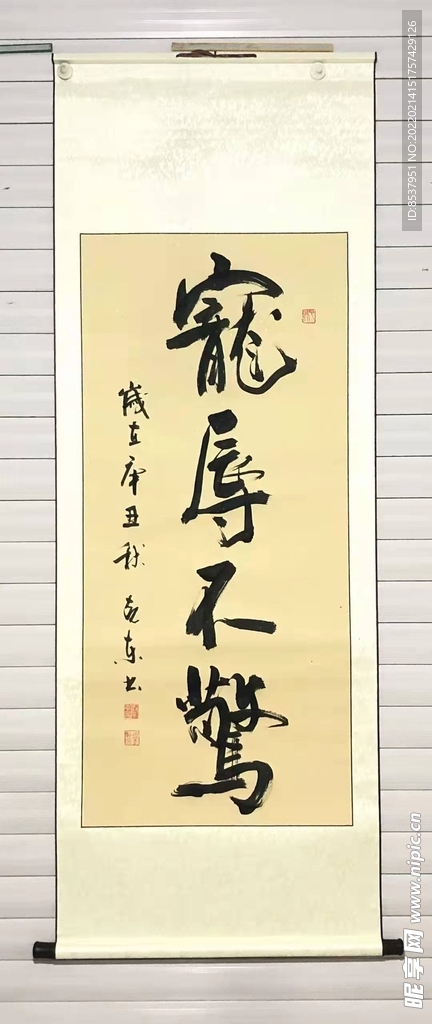 寵辱不驚
歲在庚丑秋 克东书
ID:8537951 NO:20220214151757429126
昵享网 www.nipic.cn